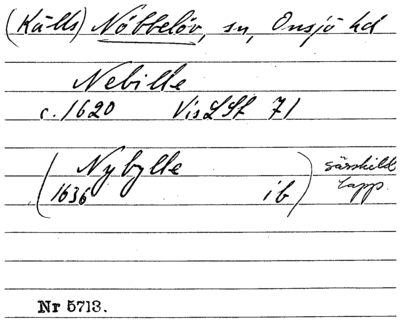 (Källs) Nöbbelöv, sn, Onsjö hd
Nebille
c. 1620 VisLSt 71
(Nybylle särskild
1636 ib) lapp
Nr 5713.